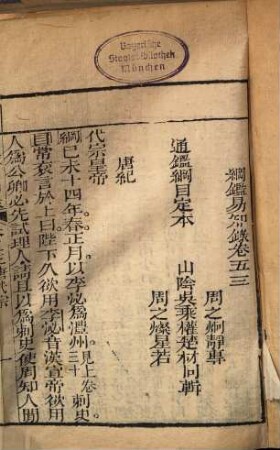 Bayerische
Staatsbibliothek
München
綱鑑易知錄卷五三
周之炯靜專
通鑑綱目定本　山陰吳乘權楚材同輯
周之燦星若
唐紀
代宗皇帝
綱己未十四年。春正月以李泌為澧州見上卷三十刺史
目常袞言於上曰陛下久欲用李泌昔漢宣帝欲用
人為公卿必先試理人請且以為刺史使周知人間